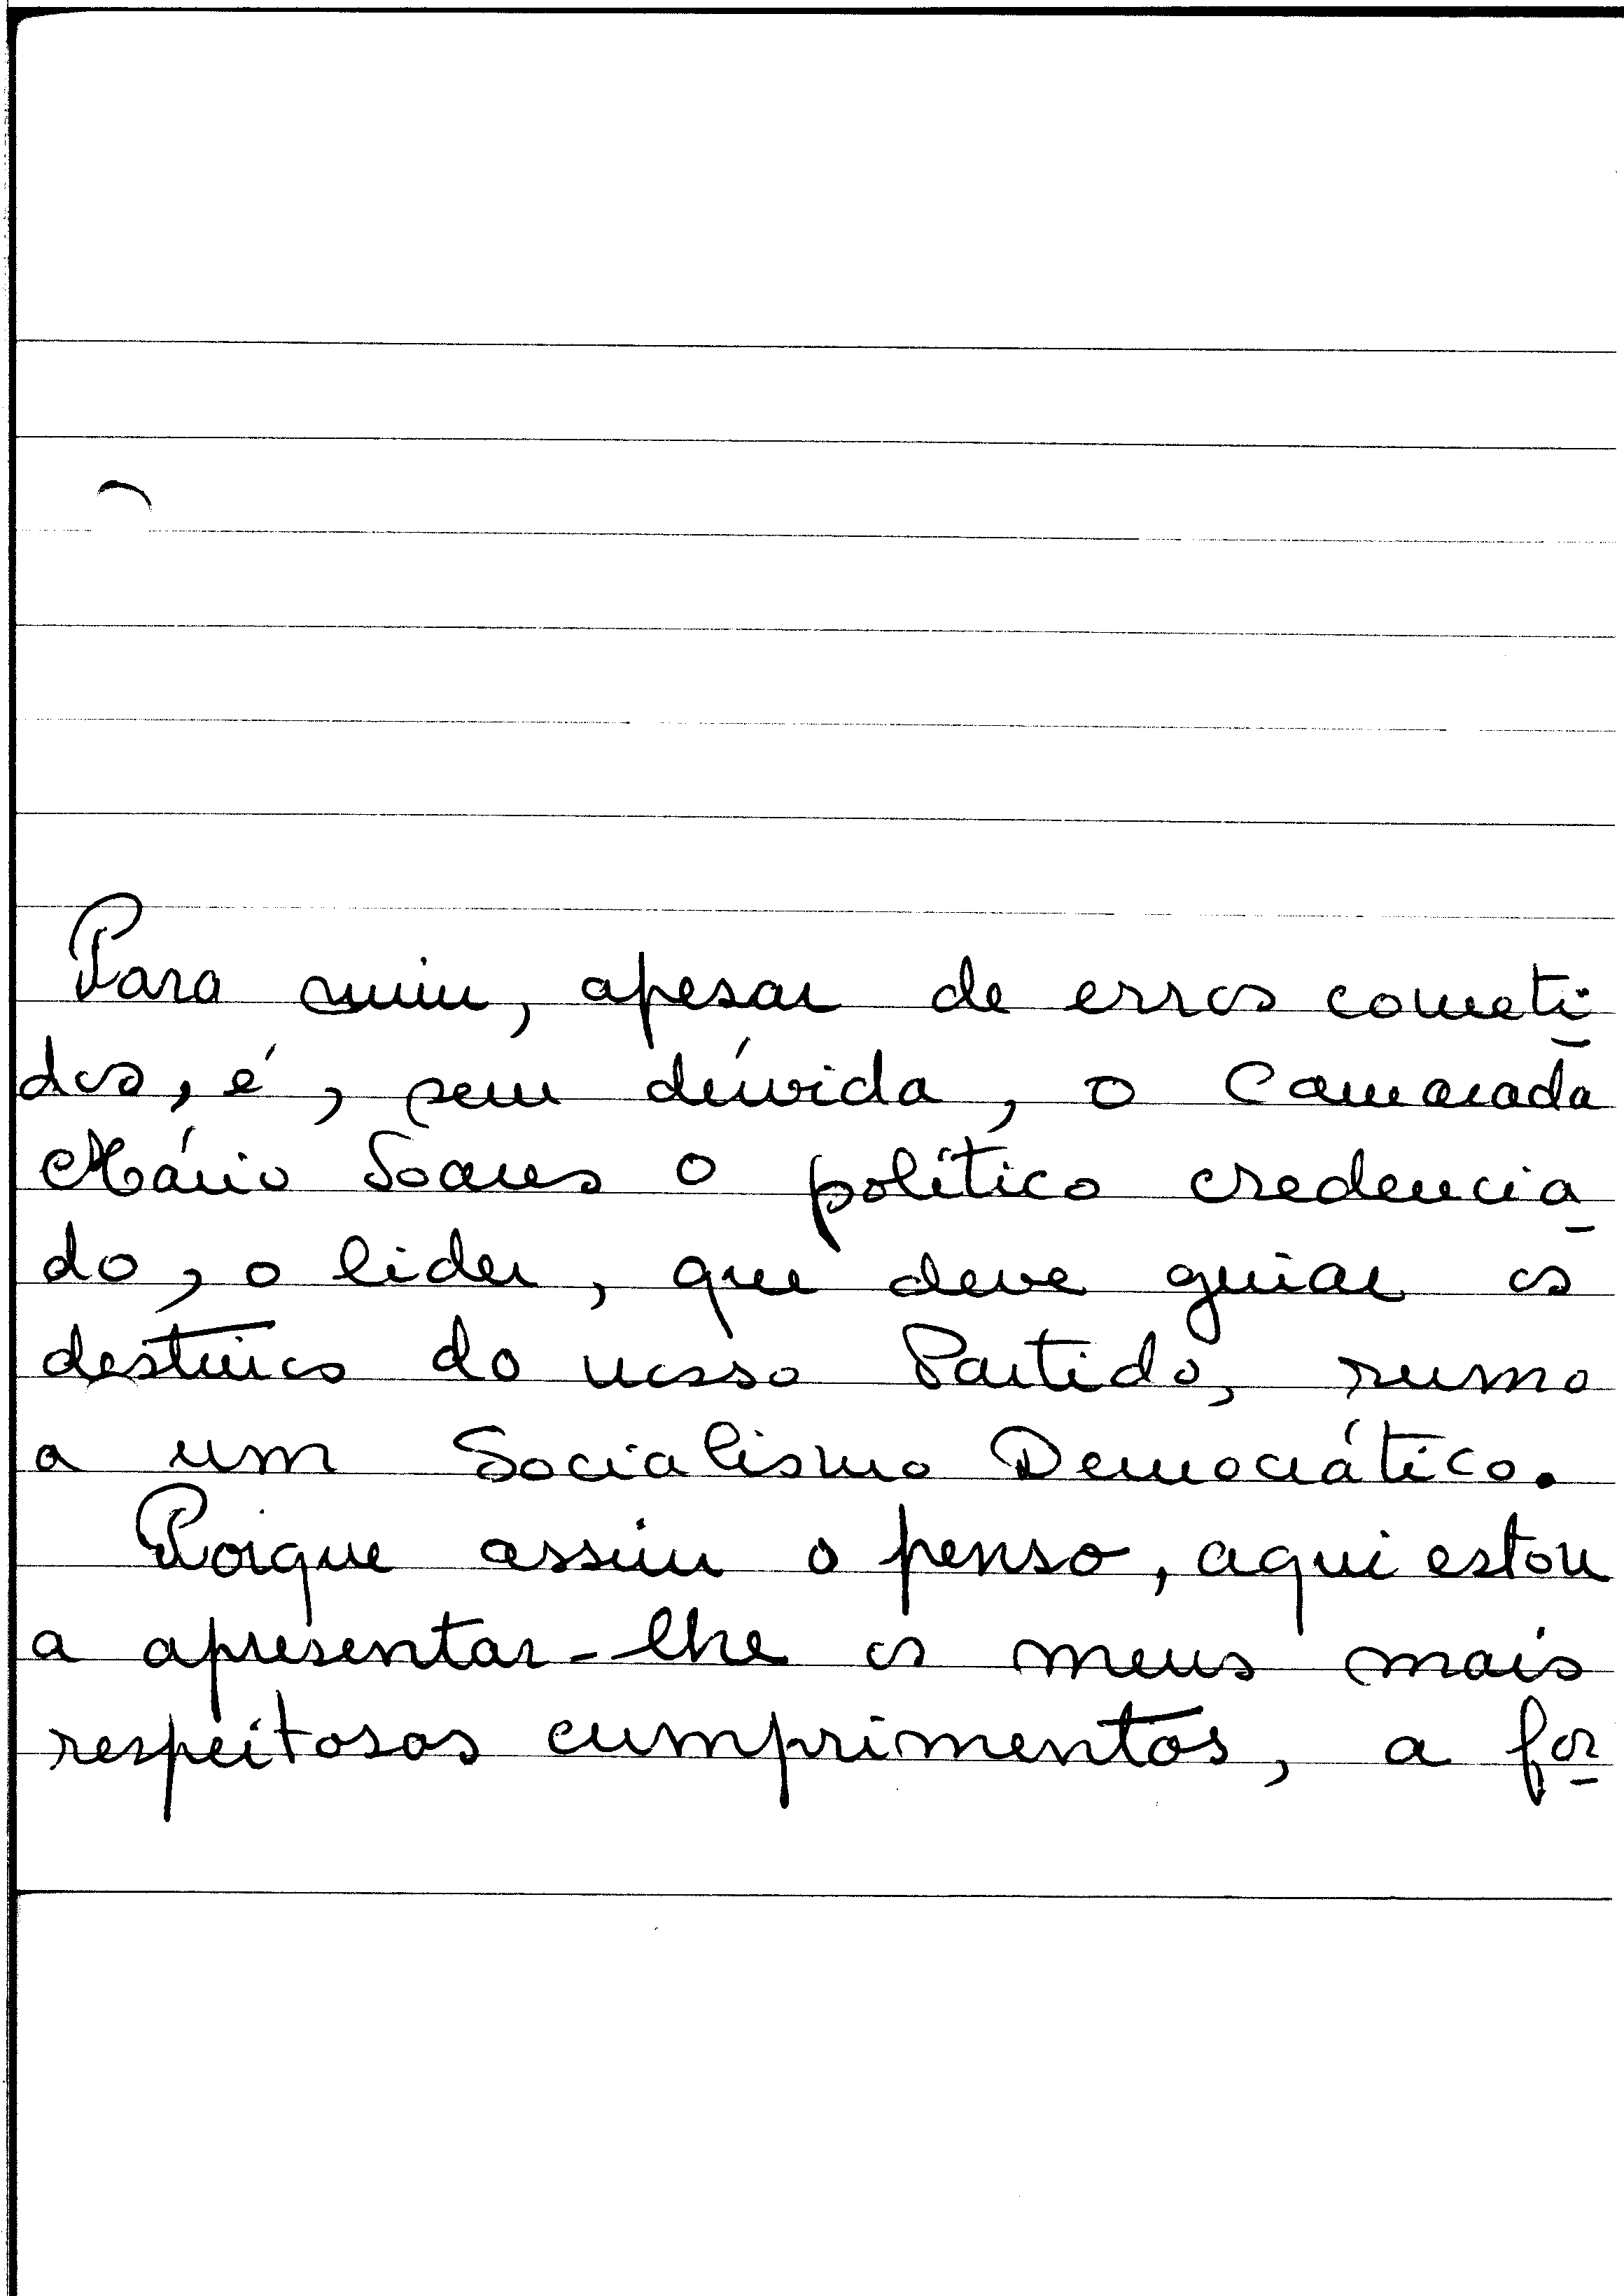 Para mim, apesar de erros cometi-
dos, é, sem dúvida, o Camarada
Mário Soares o político credencia-
do, o lider, que deve guiar os
destinos do nosso Partido, rumo
a um Socialismo Democrático.
Porque assim o penso, aqui estou
a apresentar-lhe os meus mais
respeitosos cumprimentos, a for-